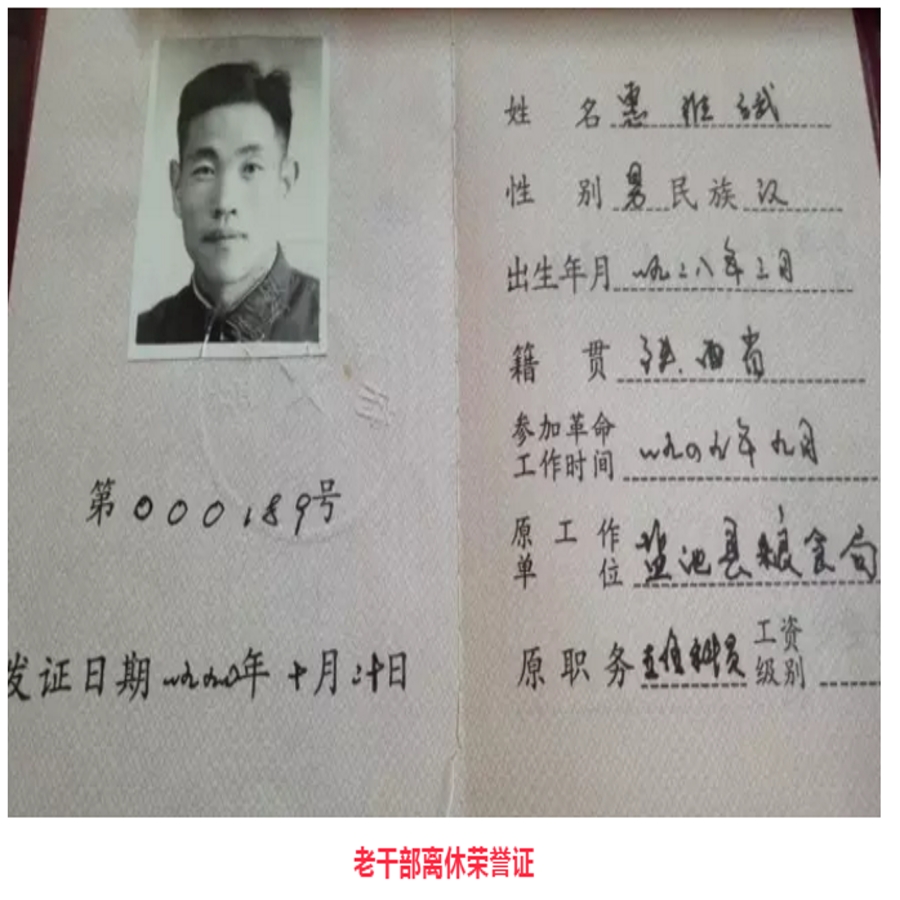 第000189号
发证日期一九九〇年十月二十日
姓名惠维斌
性别男民族汉
出生年月一九二八年二月
籍贯陕西省
参加革命工作时间一九四九年九月
原工作单位盐池县粮食局
原职务主任科员工资级别
老干部离休荣誉证